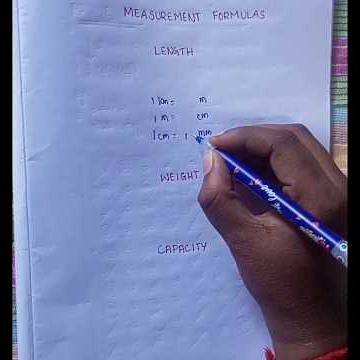 MEASUREMENT FORMULAS
LENGTH
1 km = m
1 m = cm
1 cm = 1 mm
WEIGHT
CAPACITY